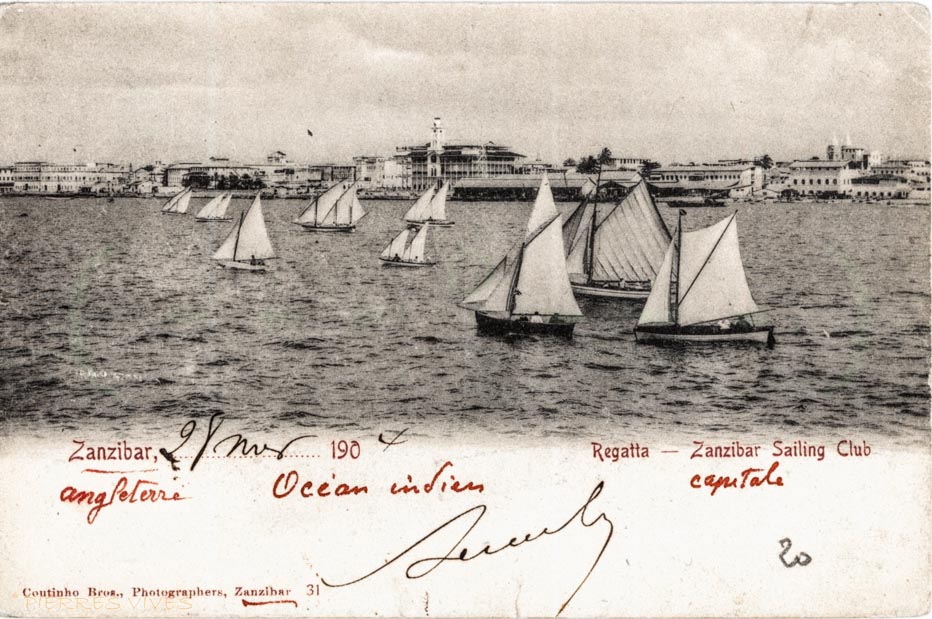 Zanzibar, 28 nov 1904
Regatta — Zanzibar Sailing Club
angleterre Océan indien capitale
20
Coutinho Bros., Photographers, Zanzibar 31
PIERRES VIVES